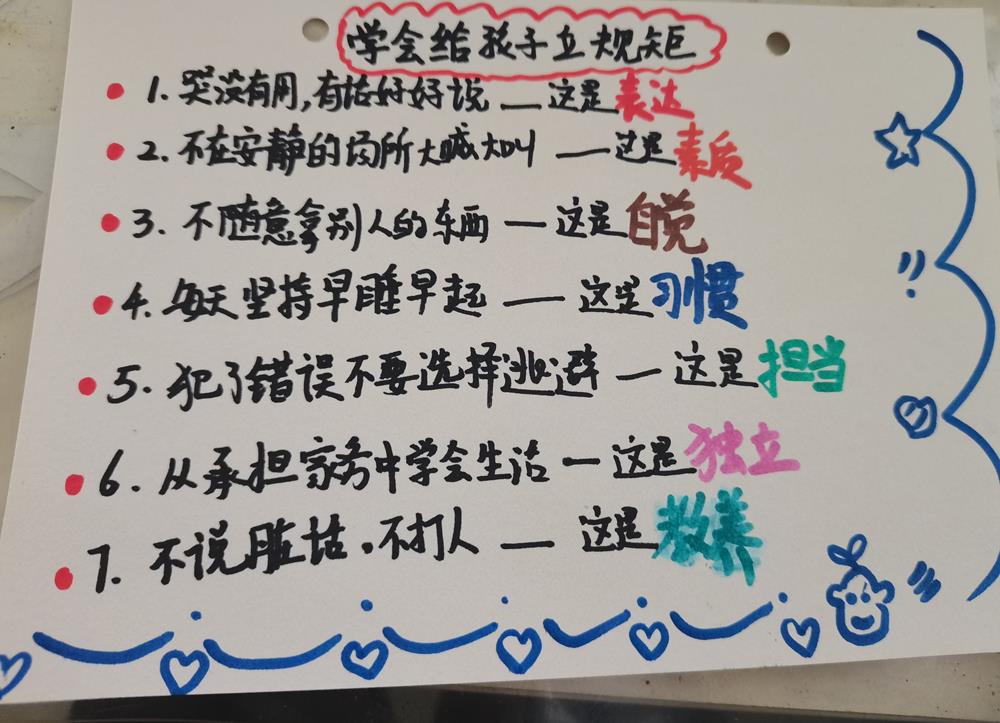 学会给孩子立规矩
1. 哭没有用,有话好好说 — 这是表达
2. 不在安静的场所大喊大叫 — 这是素质
3. 不随意拿别人的东西 — 这是自觉
4. 每天坚持早睡早起 — 这是习惯
5. 犯了错误不要选择逃避 — 这是担当
6. 从承担家务中学会生活 — 这是独立
7. 不说脏话.不打人 — 这是教养